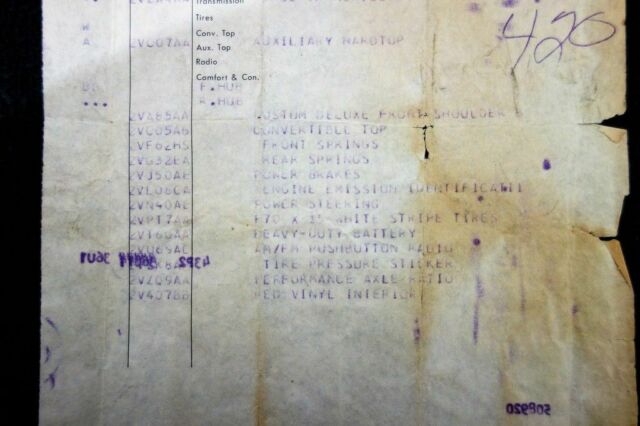 Transmission
Tires
W Conv. Top
A 2VC07AA Aux. Top AUXILIARY HARDTOP
Radio
Comfort & Con.
F.HUB
... R.HUB
2VA85AA CUSTOM DELUXE FRONT SHOULDER
2VC05AB CONVERTIBLE TOP
2VF62HS FRONT SPRINGS
2VG32EA REAR SPRINGS
2VJ50AE POWER BRAKES
2VL06CA ENGINE EMISSION IDENTIFICATI
2VN40AE POWER STEERING
2VPT7AA F70 X WHITE STRIPE TIRES
2VT60AA HEAVY-DUTY BATTERY
2VU69AC AM/FM PUSHBUTTON RADIO
36U1 43P2 TIRE PRESSURE STICKER
2VZ09AA PERFORMANCE AXLE RATIO
2V407BB RED VINYL INTERIOR
420
508920